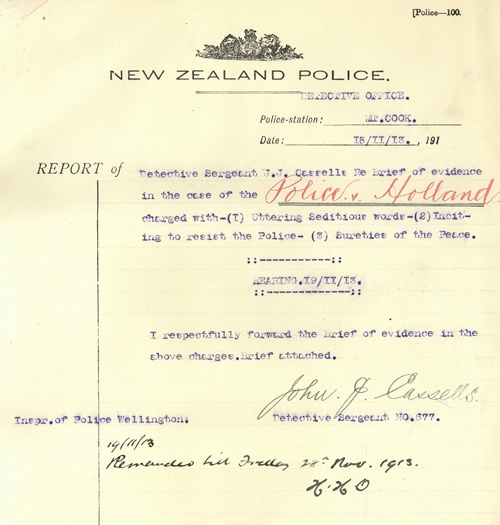 [Police—100.
NEW ZEALAND POLICE.
DETECTIVE OFFICE.
Police-station: MT.COOK.
Date: 15/11/13. , 191
REPORT of Detective Sergeant J.J. Cassells Re Brief of evidence
in the case of the Police v. Holland
charged with-(1) Uttering Seditious words-(2)Incit-
ing to resist the Police- (3) Sureties of the Peace.
::-----------::
HEARING.19/11/13.
::--------------::
I respectfully forward the Brief of evidence in the
above charges.Brief attached.
John. J. Cassells.
Inspr.of Police Wellington. Detective Sergeant NO.677.
19/11/13
Remanded till Friday Nov. 1913.